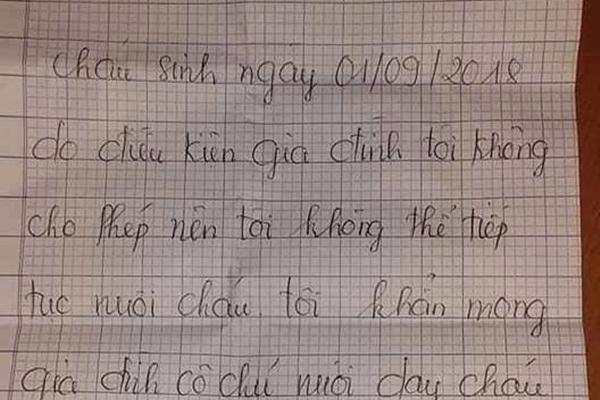 cháu sinh ngày 01/09/2018
do điều kiện gia đình tôi không
cho phép nên tôi không thể tiếp
tục nuôi cháu tôi khẩn mong
gia đìh cô chú nuôi dạy cháu